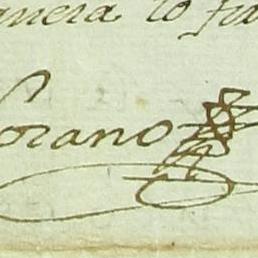 anera lo fir
orano